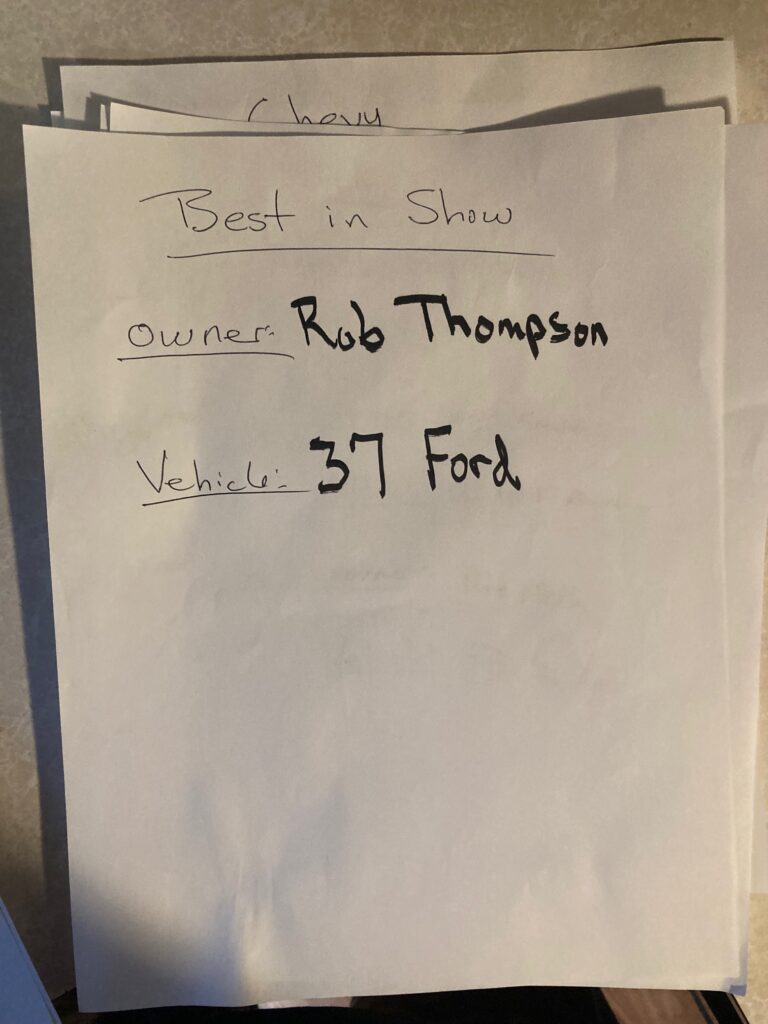 Chevy
Best in Show
Owner: Rob Thompson
Vehicle: 37 Ford